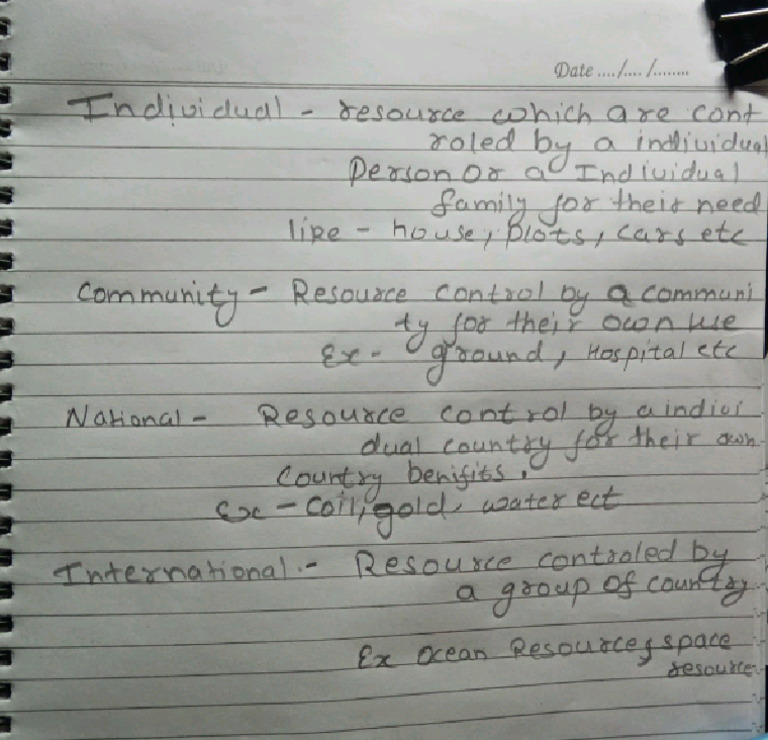 Date ..../..../........
Individual - resource which are cont
roled by a individual
Person Or a Individual
family for their need
like - house, plots, cars etc
Community - Resource control by a communi
ty for their own use
Ex - ground, Hospital etc
National - Resource control by a indivi
dual country for their own
Country benifits.
Ex - Coil, gold, water ect
International :- Resource controled by
a group of country
Ex Ocean Resource, space
resource